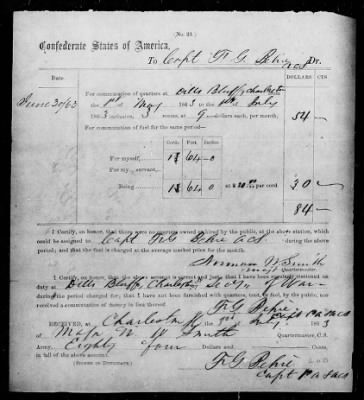 (No. 23.)
Confederate States of America,
To Capt F. G. Behre ACS Dr.
DATE.
DOLLARS CTS
June 30/63
For commutation of quarters at Dills Bluff, Charleston
the 1st May 1863 to the 1st July
1863 inclusive, 3 rooms, at 9 dollars each, per month,
54 —
For commutation of fuel for the same period:—
Cords. Feet. In.
For myself,
For my servant,
Being at $ per cord
30 —
84 —
I Certify, on honor, that there were no quarters owned or hired by the public, at the above station, which
could be assigned to Capt F G Behre ACS during the above
period; and that the fuel is charged at the average market price for the month.
Norman W Smith
Quartermaster.
I Certify, on honor, that the above account is correct and just; that I have been regularly stationed on
duty at Dills Bluff, Charleston
during the period charged for; that I have not been furnished with quarters, tent, or fuel, by the public, nor received
a commutation of money in lieu thereof.
F G Behre
Capt & ACS
RECEIVED, at Charleston the 1st July 1863
of Majr N. W Smith Quartermaster, C.S.
Army, Eighty four Dollars and Cents,
F G Behre
(SIGNED IN DUPLICATE.)
Capt & ACS